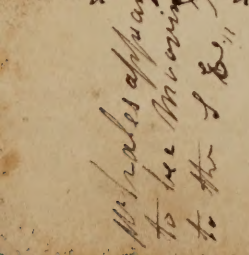 Whales appear
to bee Mooving
to the S E"